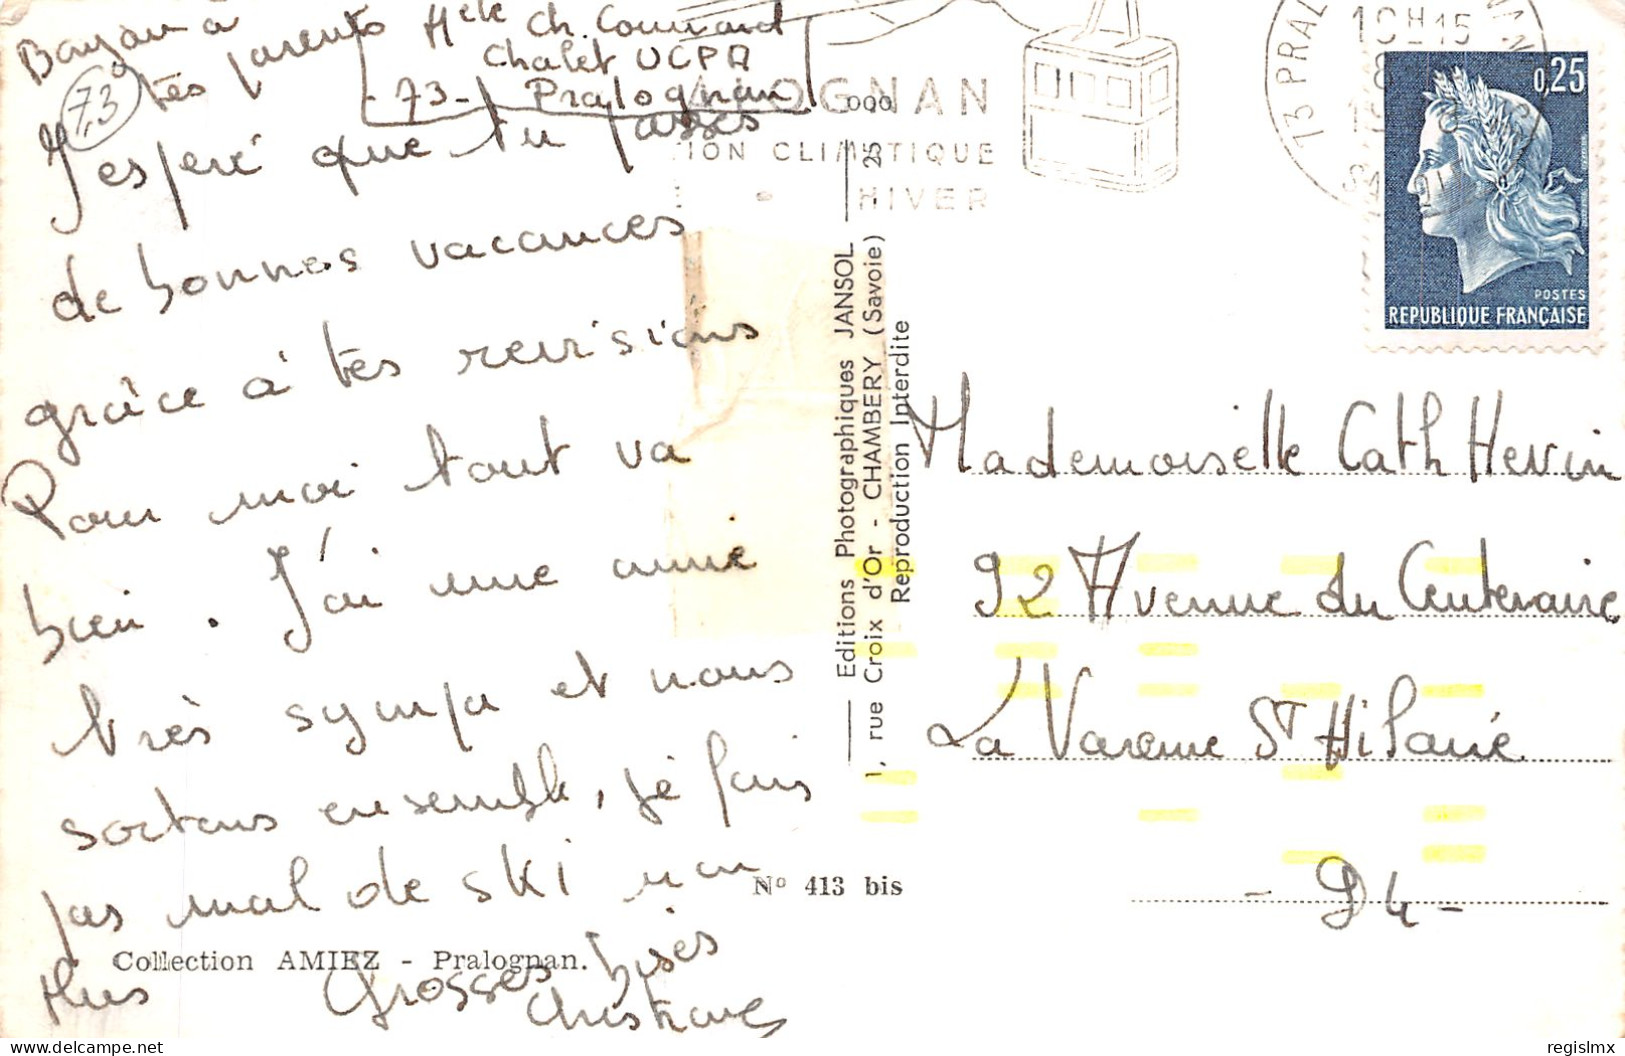 Bonjour à
tes parents
73
Melle Ch. Counard
Chalet UCPA
- 73 - Pralognan
J'espère que tu passes
de bonnes vacances
grâce à tes revisions
Pour moi tout va
bien. J'ai une amie
très sympa et nous
sortons ensemble, je fais
pas mal de ski non
plus Grosses bises
Christiane
ALOGNAN
ION CLIMATIQUE
HIVER
73 PRAL
10H15
0,25
POSTES
REPUBLIQUE FRANÇAISE
Editions Photographiques JANSOL
1, rue Croix d'Or - CHAMBERY (Savoie)
Reproduction Interdite
25 000
Mademoiselle Cath Hervin
92 Avenue du Centenaire
La Varenne St Hilaire
- 94 -
N° 413 bis
Collection AMIEZ - Pralognan.
regislmx